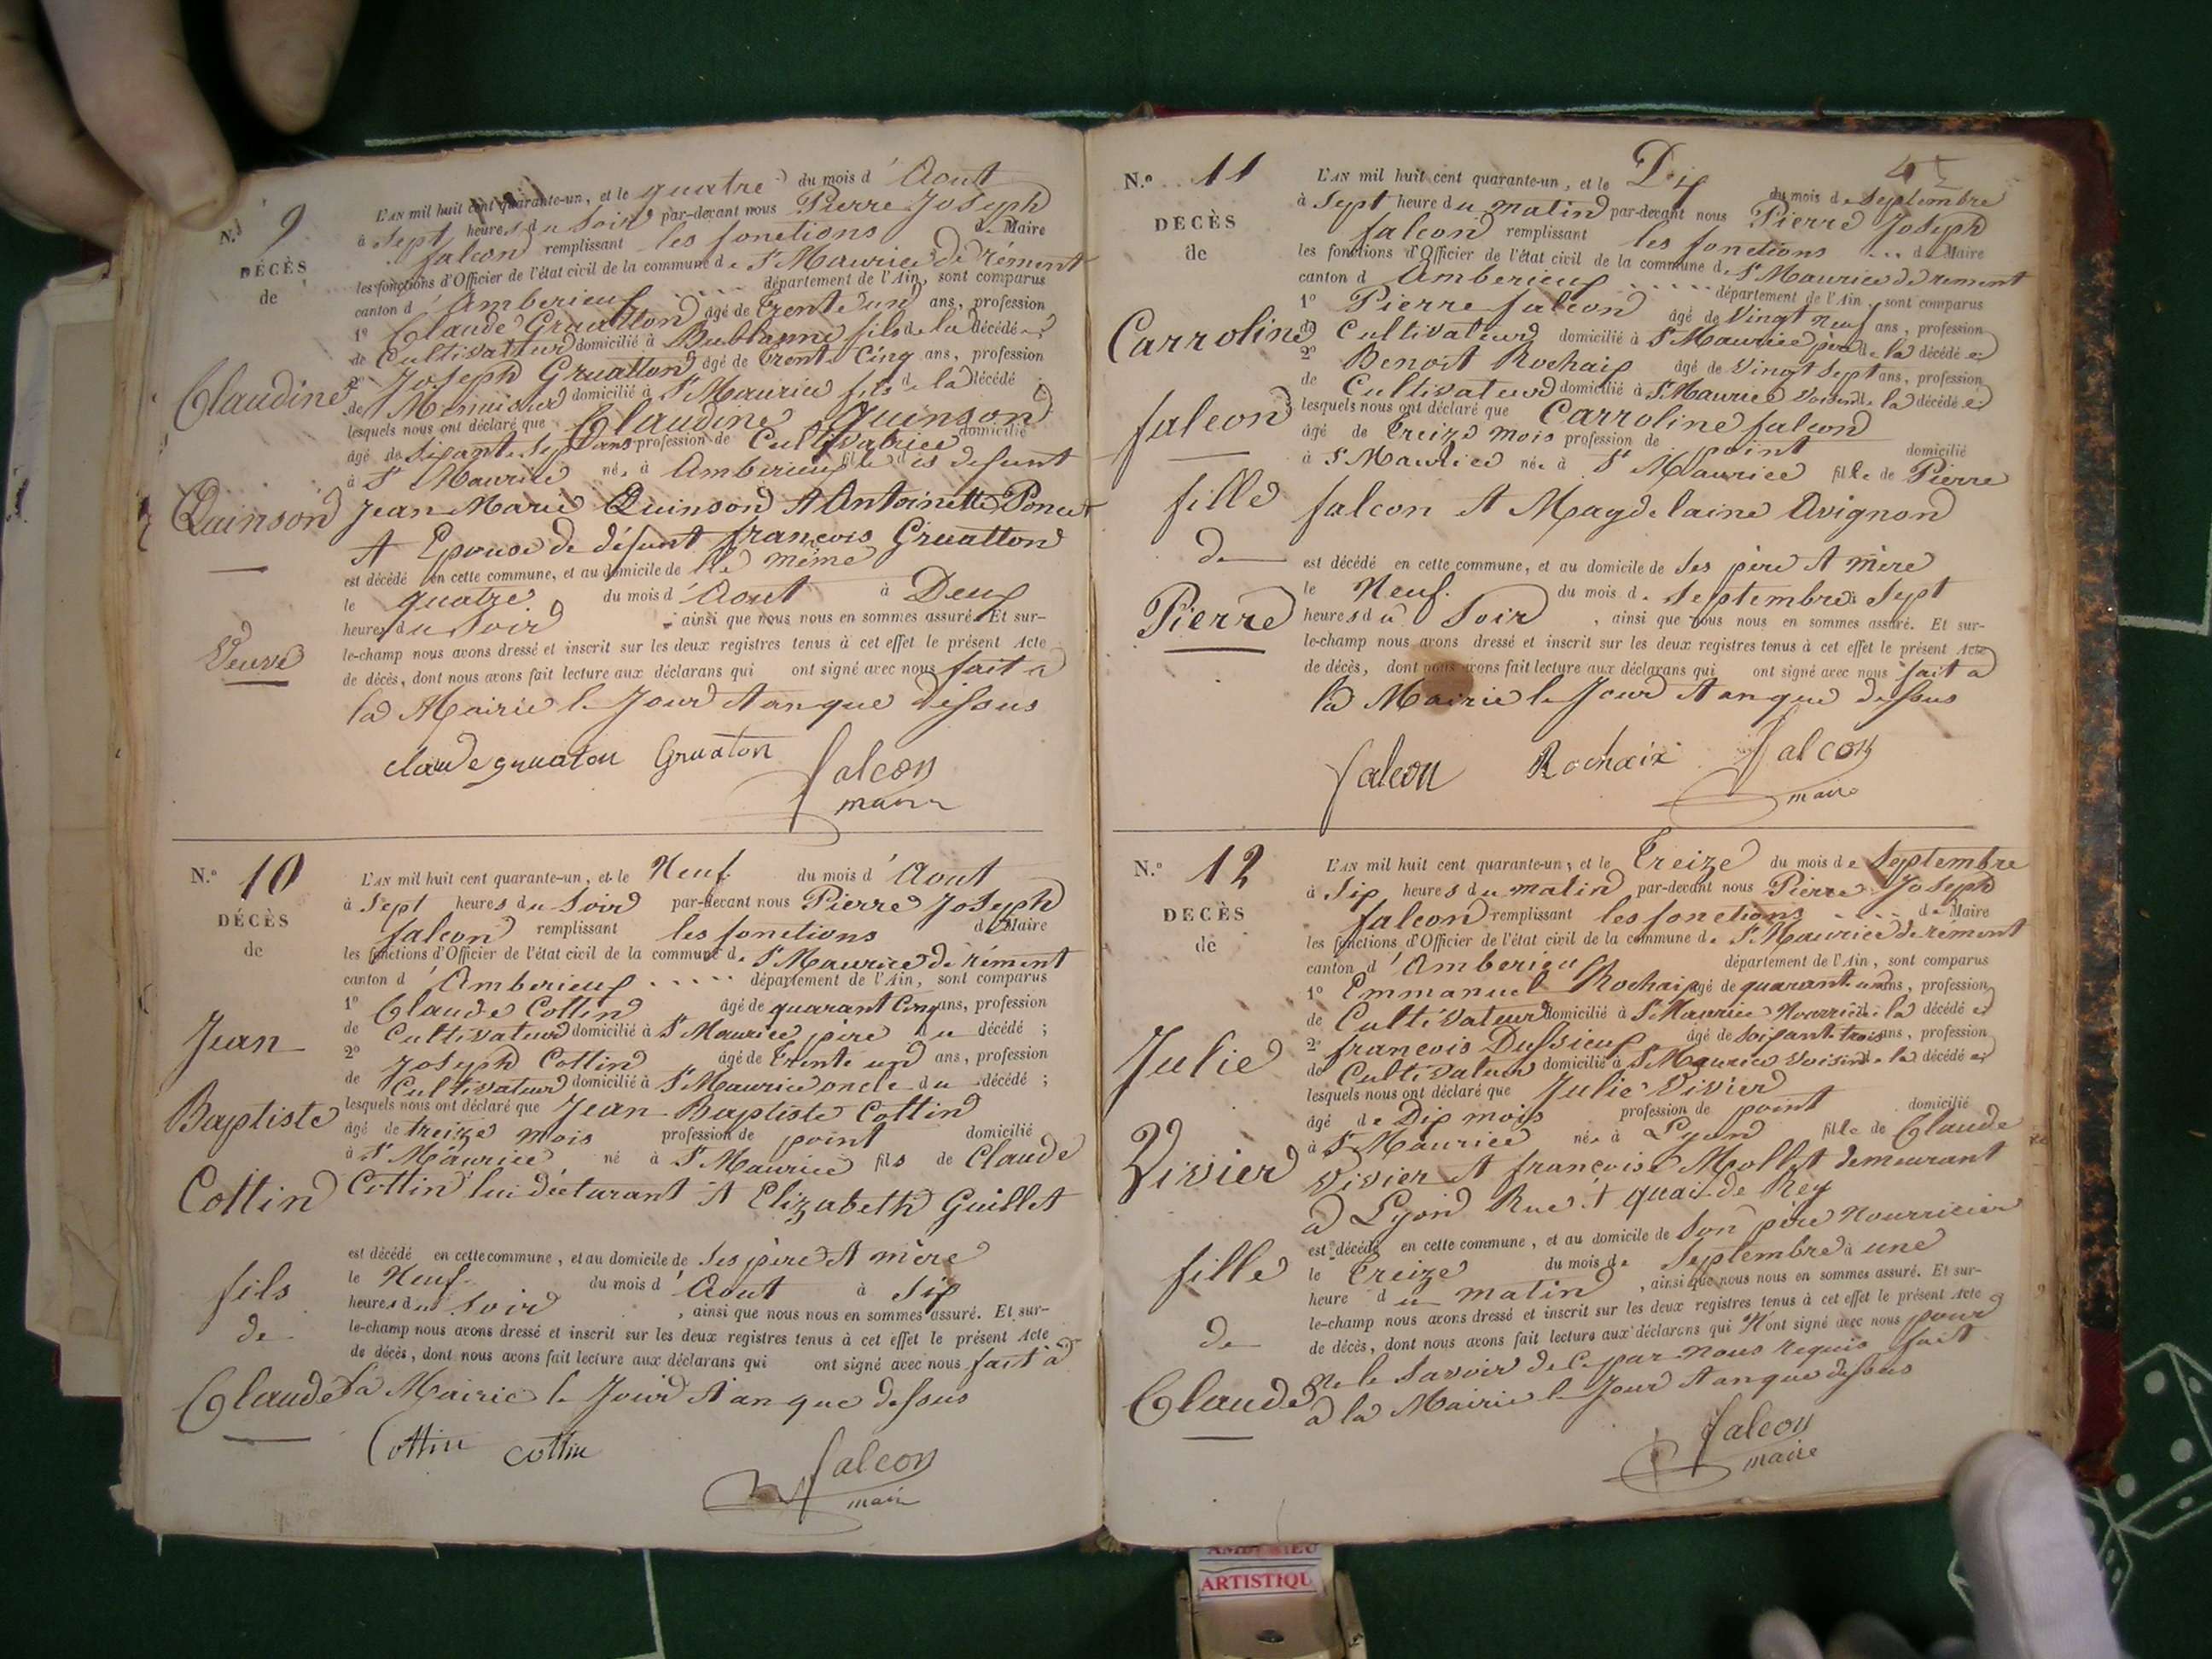 N.º 9
DÉCÈS
de
Claudine
Quinson
Veuve
L'AN mil huit cent quarante-un, et le quatre du mois d'Aout
à Sept heures du Soir par-devant nous Pierre Joseph
falcon remplissant les fonctions de Maire
les fonctions d'Officier de l'état civil de la commune de St Maurice de rément
canton d'Amberieux département de l'Ain, sont comparus
1º Claude Gruatton âgé de trente un ans, profession
de Cultivateur domicilié à Bublanne fils de la décédée
2º Joseph Gruatton âgé de trente Cinq ans, profession
de Menuisier domicilié à St Maurice fils de la décédé
lesquels nous ont déclaré que Claudine Quinson
âgé de Sixante Sept ans profession de Cultivatrice domicilié
à St Maurice née à Amberieux fille des defunt
Jean Marie Quinson et Antoinette Poncet
et Epouse de défunt francois Gruatton
est décédé en cette commune, et au domicile de le même
le quatre du mois d'Aout à Deux
heures du Soir ainsi que nous nous en sommes assuré. Et sur-
le-champ nous avons dressé et inscrit sur les deux registres tenus à cet effet le présent Acte
de décès, dont nous avons fait lecture aux déclarans qui ont signé avec nous fait a
la Mairie le Jour et an que dessus
claude gruaton Gruaton falcon
maire
N.º 10
DÉCÈS
de
Jean
Baptiste
Cottin
fils
de
Claude
L'AN mil huit cent quarante-un, et le Neuf du mois d'Aout
à Sept heures du Soir par-devant nous Pierre Joseph
falcon remplissant les fonctions de Maire
les fonctions d'Officier de l'état civil de la commune de St Maurice de rément
canton d'Amberieux département de l'Ain, sont comparus
1º Claude Cottin âgé de quarant Cinq ans, profession
de Cultivateur domicilié à St Maurice père du décédé ;
2º Joseph Cottin âgé de trente un ans, profession
de Cultivateur domicilié à St Maurice oncle du décédé ;
lesquels nous ont déclaré que Jean Baptiste Cottin
âgé de treize mois profession de point domicilié
à St Maurice né à St Maurice fils de Claude
Cottin lui déclarant et Elizabeth Guillet
est décédé en cette commune, et au domicile de Ses père et mère
le Neuf du mois d'Aout à Six
heures du Soir, ainsi que nous nous en sommes assuré. Et sur-
le-champ nous avons dressé et inscrit sur les deux registres tenus à cet effet le présent Acte
de décès, dont nous avons fait lecture aux déclarans qui ont signé avec nous fait à
la Mairie le Jour et an que dessus
Cottin cottin falcon
maire
N.º 11
DÉCÈS
de
Carroline
falcon
fille
de
Pierre
L'AN mil huit cent quarante-un, et le Dix du mois de Septembre
à Sept heure du matin par-devant nous Pierre Joseph
falcon remplissant les fonctions de Maire
les fonctions d'Officier de l'état civil de la commune de St Maurice de rement
canton d'Amberieux département de l'Ain, sont comparus
1º Pierre falcon âgé de Vingt neuf ans, profession
de Cultivateur domicilié à St Maurice père de la décédé e
2º Benoit Rochaix âgé de Vingt Sept ans, profession
de Cultivateur domicilié à St Maurice Voisin de la décédé e
lesquels nous ont déclaré que Carroline falcon
âgé de treize mois profession de point domicilié
à St Maurice née à St Maurice fille de Pierre
falcon et Magdelaine Avignon
est décédé en cette commune, et au domicile de Ses père et mère
le Neuf. du mois de Septembre à Sept
heures du Soir, ainsi que nous nous en sommes assuré. Et sur-
le-champ nous avons dressé et inscrit sur les deux registres tenus à cet effet le présent Acte
de décès, dont nous avons fait lecture aux déclarans qui ont signé avec nous fait a
la Mairie le Jour et an que dessus
falcon Rochaix falcon
maire
N.º 12
DÉCÈS
de
Julie
Vivier
fille
de
Claude
L'AN mil huit cent quarante-un, et le Treize du mois de Septembre
à Six heures du matin par-devant nous Pierre Joseph
falcon remplissant les fonctions de Maire
les fonctions d'Officier de l'état civil de la commune de St Maurice de rément
canton d'Amberieu département de l'Ain, sont comparus
1º Emmanuel Rochaix âgé de quarante un ans, profession
de Cultivateur domicilié à St Maurice Nourricier de la décédé e
2º francois Dussieux âgé de soixante trois ans, profession
de Cultivateur domicilié à St Maurice Voisin de la décédé e
lesquels nous ont déclaré que Julie Vivier
âgé de Dix mois profession de point domicilié
à St Maurice née à Lyon fille de Claude
Vivier et francoise Mollet demeurant
a Lyon Rue et quai de Rey
est décédé en cette commune, et au domicile de Son père nourricier
le Treize du mois de Septembre à une
heure du matin, ainsi que nous nous en sommes assuré. Et sur-
le-champ nous avons dressé et inscrit sur les deux registres tenus à cet effet le présent Acte
de décès, dont nous avons fait lecture aux déclarans qui N'ont signé avec nous pour
ne le Savoir de ce par nous requis fait
a la Mairie le Jour et an que dessus
falcon
maire
ARTISTIQU